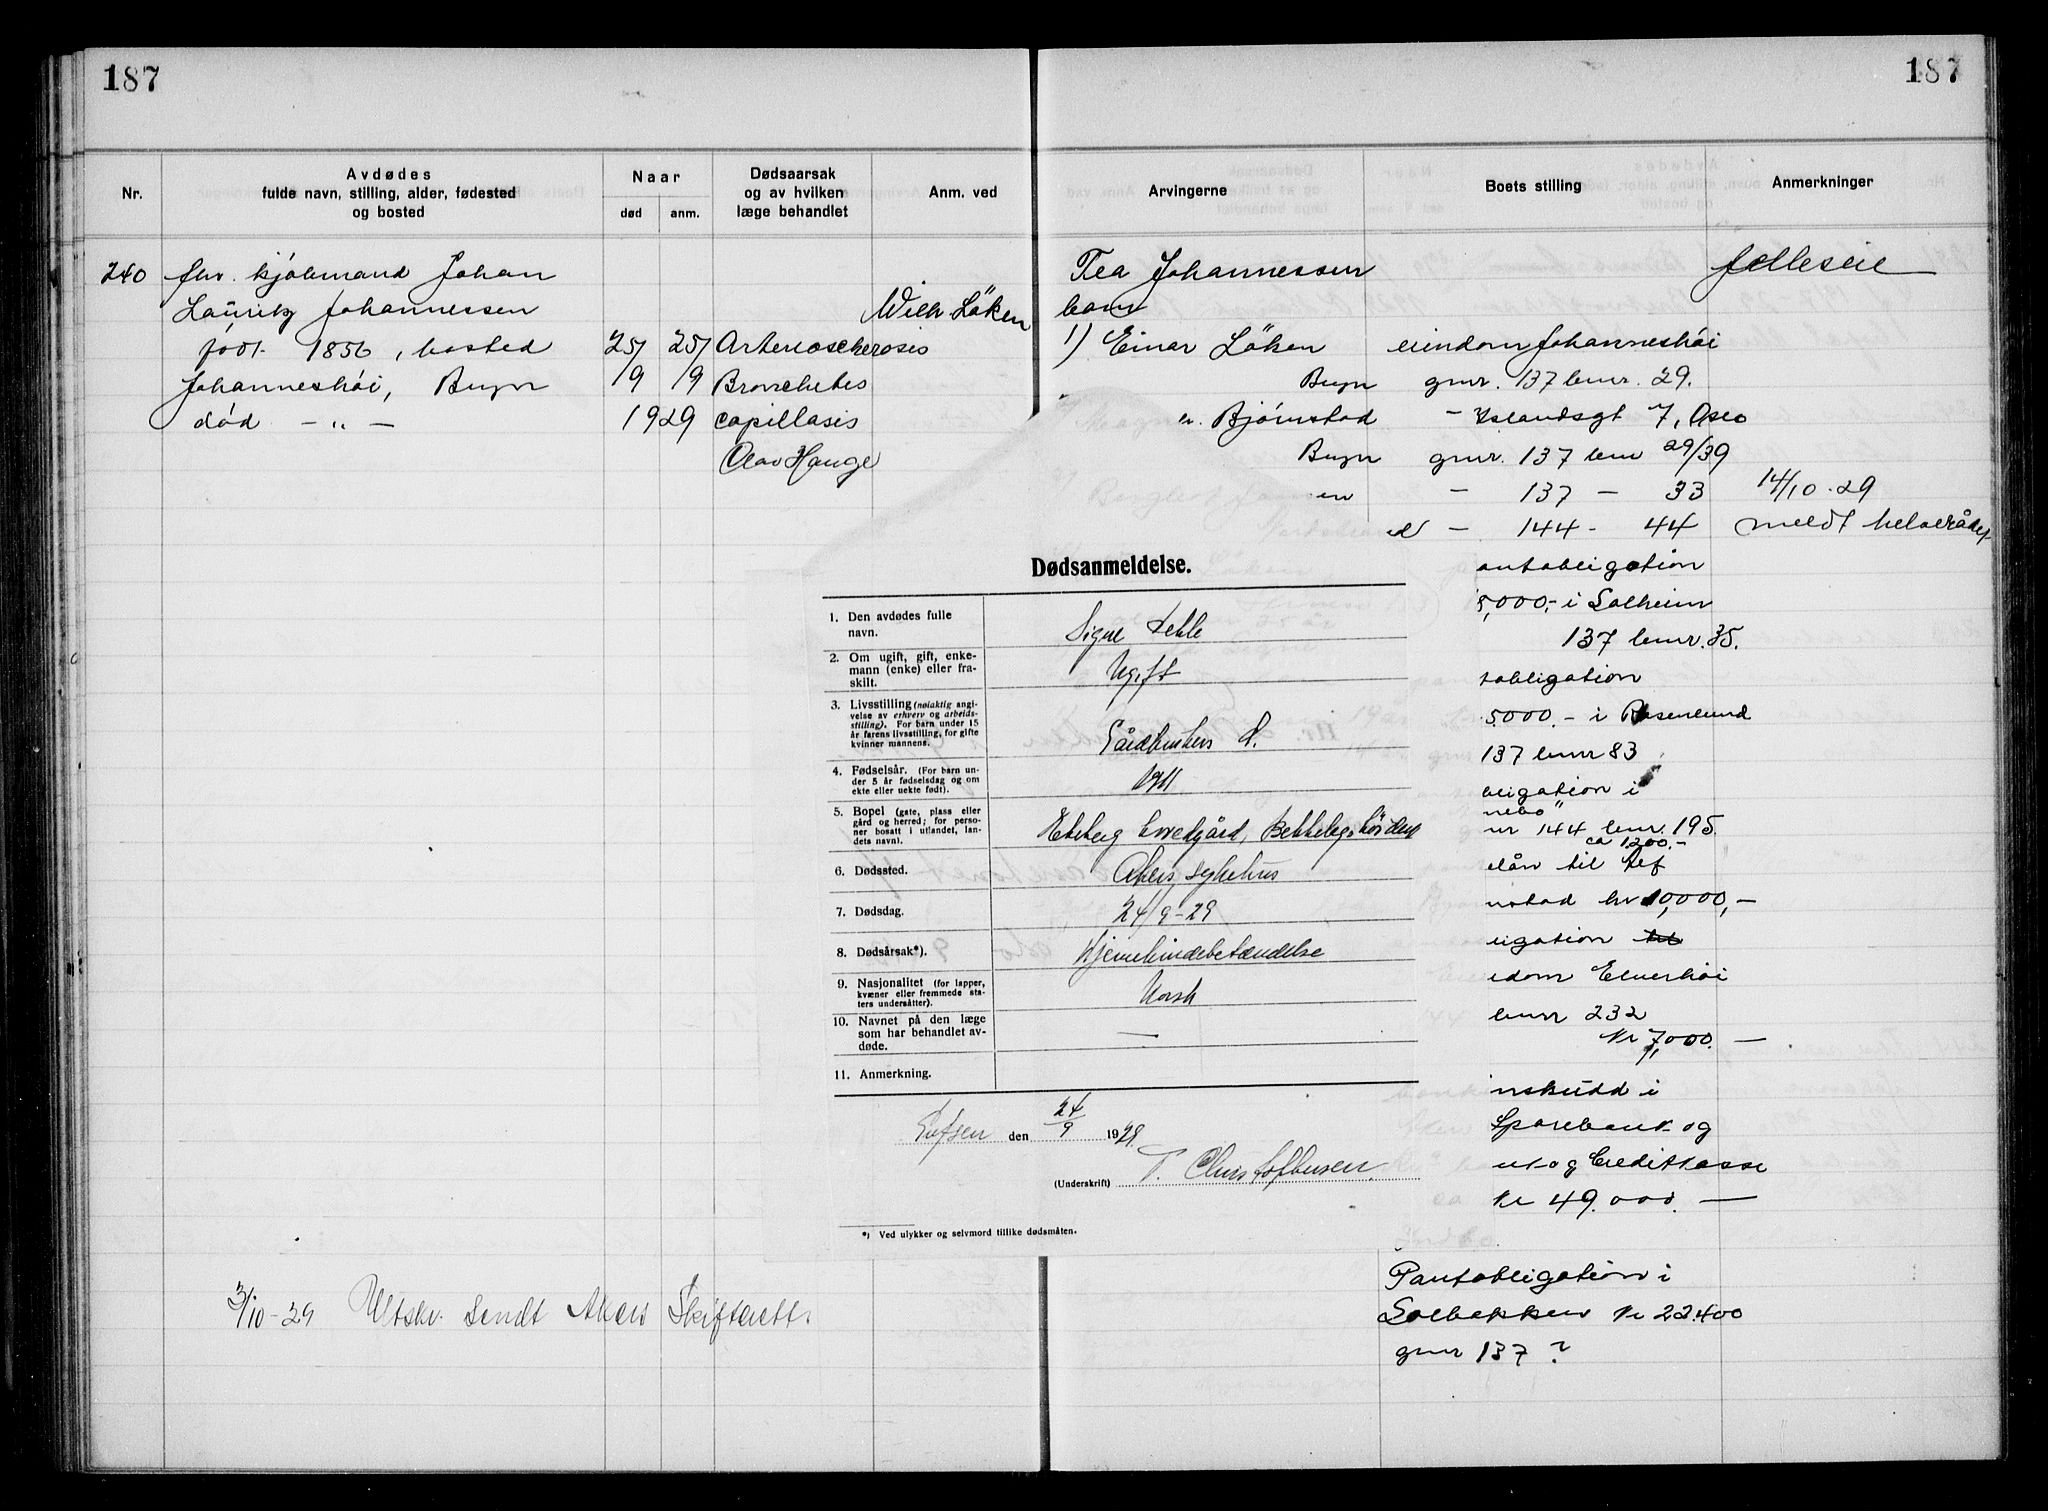 187
187
Nr.
Avdødes
fulde navn, stilling, alder, fødested
og bosted
Naar
død
anm.
Dødsaarsak
og av hvilken
læge behandlet
Anm. ved
Arvingerne
Boets stilling
Anmerkninger
240 fhv. kjøbmand Johan
Lauritz Johannessen
født 1856, bosted
Johanneshöi, Bryn
død - „ -
25/9 25/9 1929
Arteriosclerosis
Bronchites
capillasis
Olav Hauge
Wilh Löken
Tea Johannessen
barn
1) Einar Löken
Bryn
Bjørnstad
Bryn
en
eiendom Johanneshöi
gnr. 137 bnr. 29.
- Islandsgt 7, Oslo
gnr. 137 bnr 29/39
- 137 - 33
- 144 - 44
antobligation
5,000,- i Solheim
137 bnr. 35.
tobligation
5000.- i Rosenlund
137 bnr 83
bligation i
nebo"
nr 144 bnr. 195.
ca 1200.-
elån til
nstad kr 10,000,-
ligation til
iedom Elverhöi
bnr 232
Kr 7,000. -
nskudd i
Sparebank og
nk og Creditkasse
Kr 49.000. -
Pantobligation i
Solbakken Kr 22.400
gnr 137 ?
felleseie
14/10-29
meldt helserådet
Dødsanmeldelse.
1. Den avdødes fulle
navn.
Signe
2. Om ugift, gift, enke-
mann (enke) eller fra-
skilt.
Ugift
3. Livsstilling (nøiaktig angi-
velse av erhverv og arbeids-
stilling). For barn under 15
år farens livsstilling, for gifte
kvinner mannens.
Gårdbrukers d.
4. Fødselsår. (For barn un-
der 5 år fødselsdag og om
ekte eller uekte født).
1911
5. Bopel (gate, plass eller
gård og herred; for perso-
ner bosatt i utlandet, lan-
dets navn).
Ekeberg hovedgård, Bekkelagshøiden
6. Dødssted.
Akers sykehus
7. Dødsdag.
24/9-29
8. Dødsårsak*).
Hjernehindebetændelse
9. Nasjonalitet (for lapper,
kvæner eller fremmede sta-
ters undersåtter).
Norsk
10. Navnet på den læge
som har behandlet av-
døde.
—
11. Anmerkning.
Grefsen den 24/9 1929.
(Underskrift) T. Christophersen.
*) Ved ulykker og selvmord tillike dødsmåten.
3/10-29 Utskr. sendt Akers Skifterett.